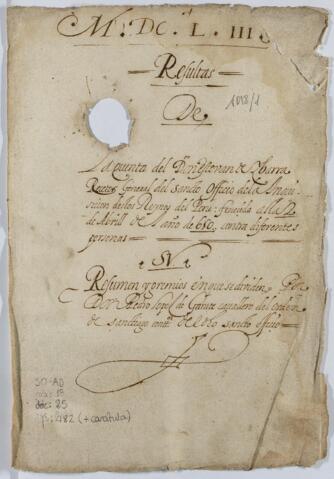 M. DC. L. III
Resultas
1048/1
De
La quenta del Dor Esteuan de Ybarra
Receptor General del Sancto Officio de la Inqui
sicion de los Reynos del Peru: fenecida a
de Abrill de año de 650, contra diferentes
personas
SV
Resumen y premios en que se diuiden Por
Don Pedro Lopez de Garate caballero del orden
de Sanctiago contor del dho sancto officio
SO-AD
doc: 25
fjs: 482 (+ caratula)